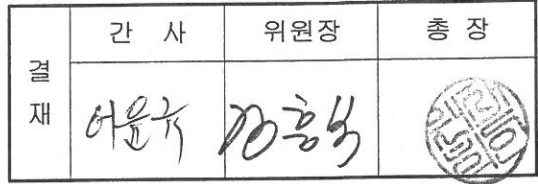 결재
간 사 위원장 총 장
어윤규